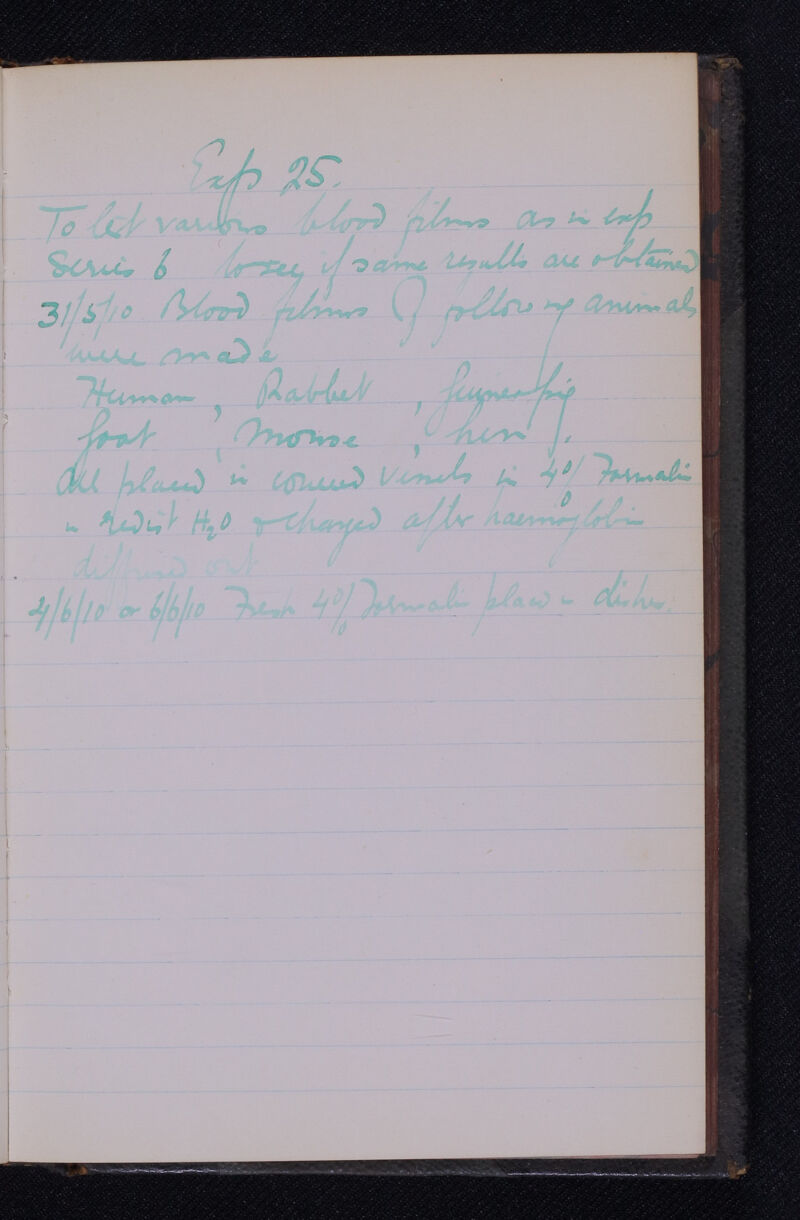 Exp 25.
To test various blood films as in exp
Series 6 to see if same results are obtained
31/5/10 Blood films of following animals
were made
Human, Rabbit, Guinea pig
Goat, Mouse, hen.
All placed in covered vessels in 4% Formalin
in redist H2O & changed after haemoglobin
diffused out
4/6/10 & 6/6/10 Fresh 4% Formalin placed in dishes.